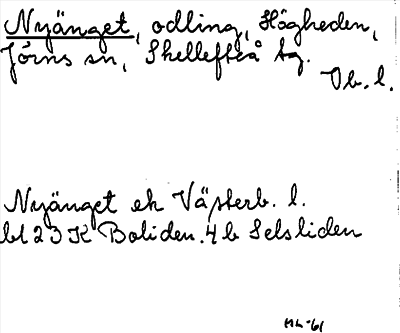 Nyänget, odling, Högheden,
Jörns sn, Skellefteå tg.
Vb. l.
Nyänget ek Västerb. l.
bl 23 K Boliden. 4 b Selsliden